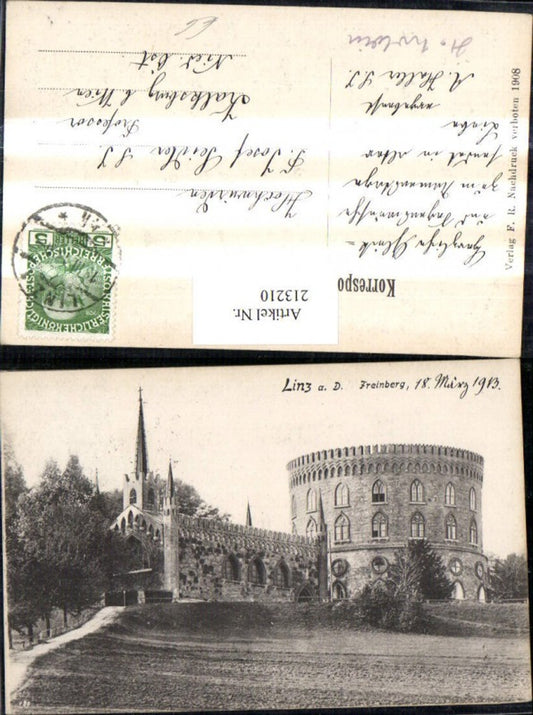 Korrespo
Herzliche Glück=
und Segenswünsche
zum Namenstage
sendet in alter
Liebe
ergebenst
A. Haller S. J.
Hochwürden
P. Josef S. J.
Professor
Kalksburg b. Wien
Nied. Öst.
Verlag F. R. Nachdruck verboten 1908
Artikel Nr.
213210
5 HELLER 5
LINZ
Linz a. D. Freinberg, 18. März 1913.